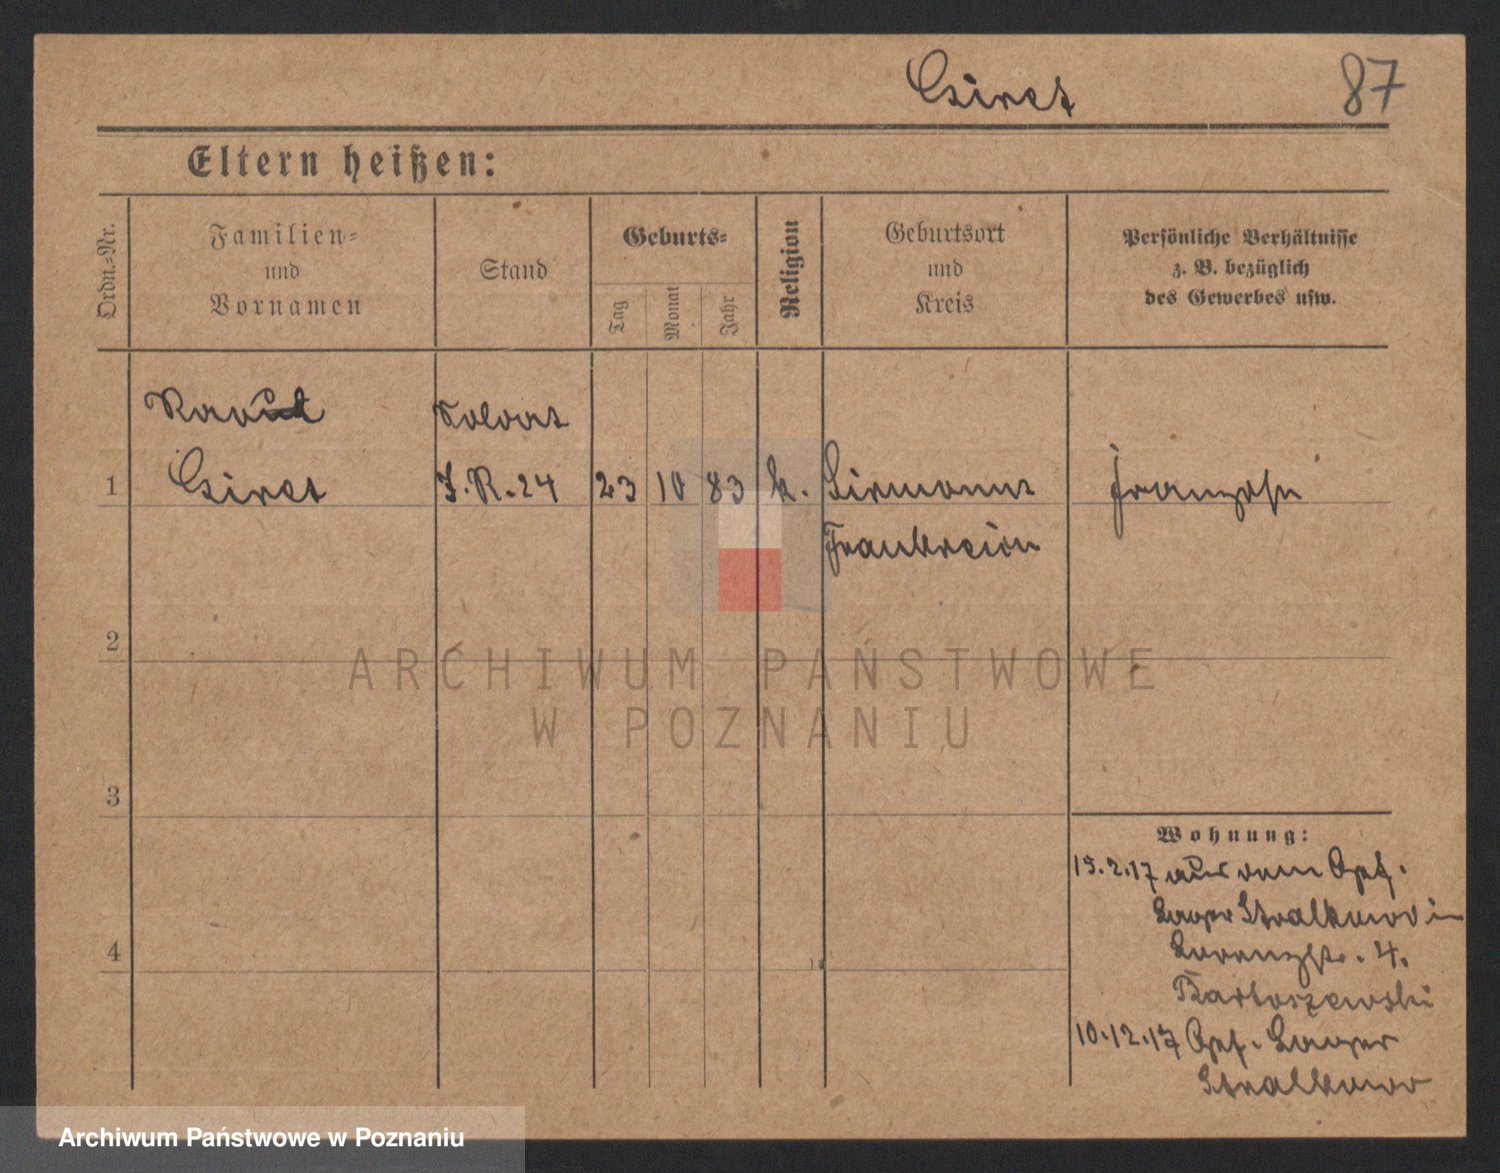 Giret 87
Eltern heißen:
Ordn.-Nr.
Familien-
und
Vornamen
Stand
Geburts-
Tag
Monat
Jahr
Religion
Geburtsort
und
Kreis
Persönliche Verhältnisse
z. B. bezüglich
des Gewerbes usw.
Soldat
1 Giret I.R.24 23 10 83 k.
Frankreich
2
ARCHIWUM PAŃSTWOWE
W POZNANIU
3
Wohnung:
15.2.17 aus dem Gef.
Lager Stralkowo in
Lorenzstr. 4.
4
Bartoszewski
10.12.17 Gef. Lager
Stralkowo
Archiwum Państwowe w Poznaniu